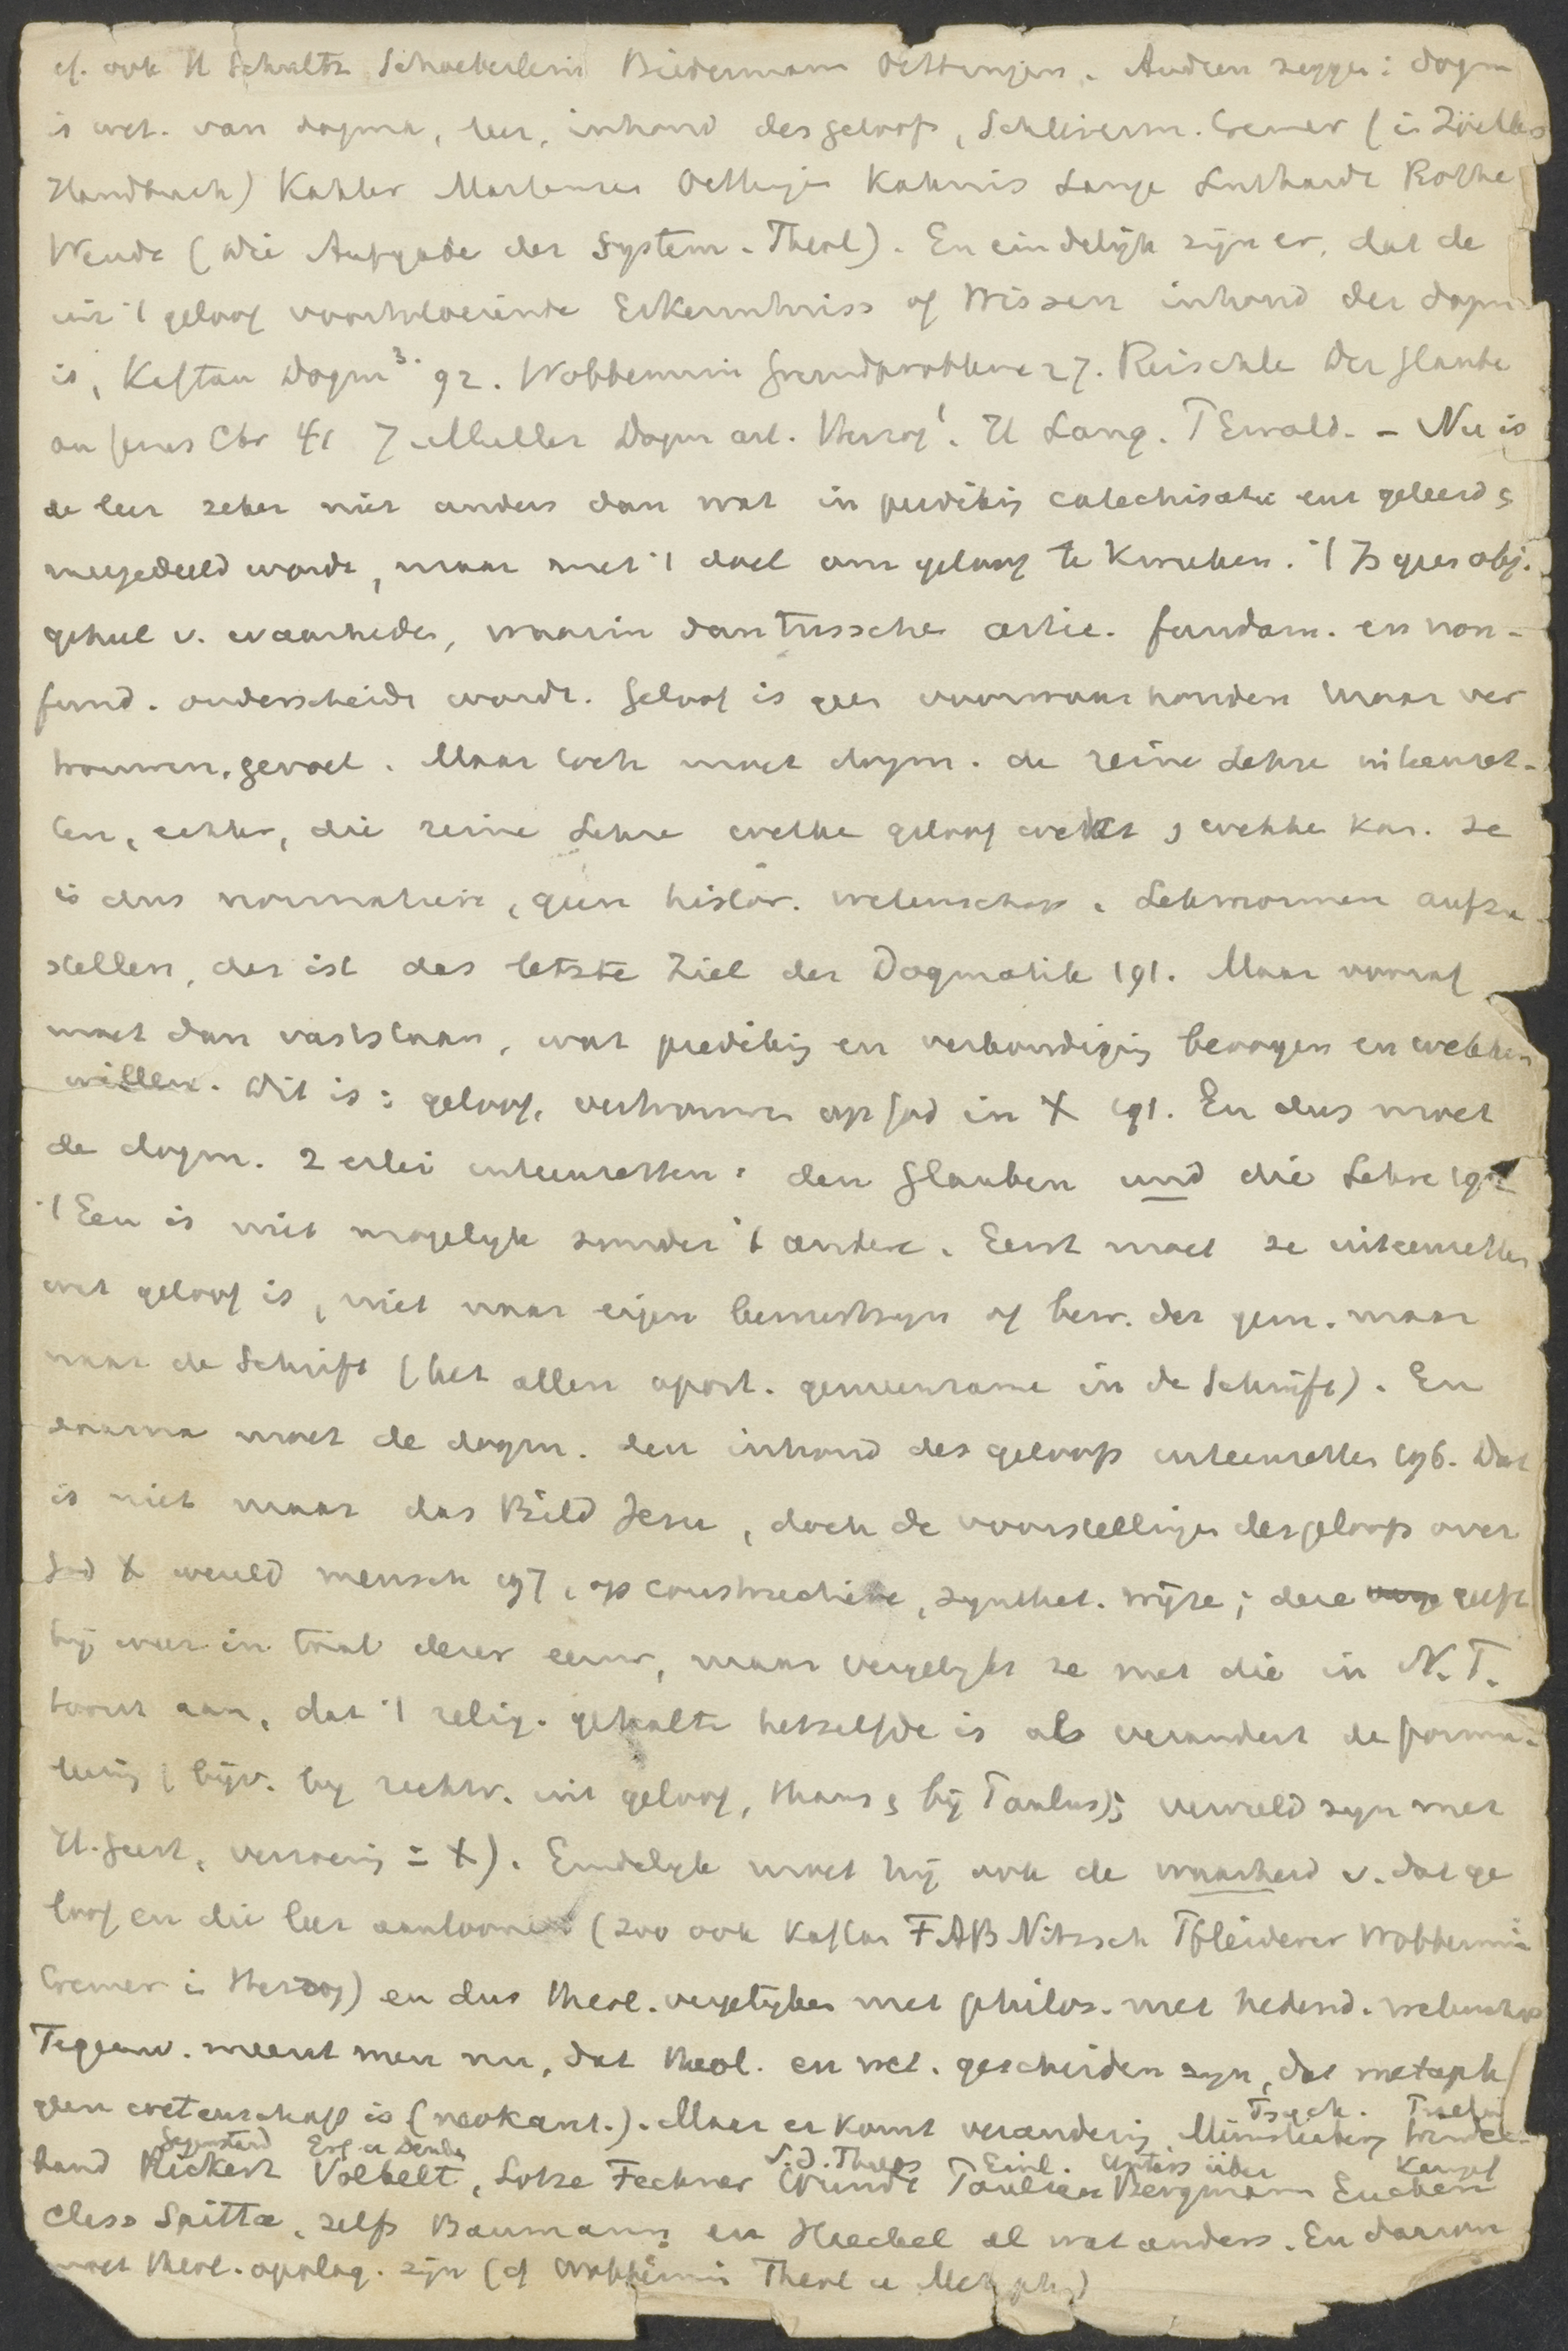 cf. ook H Schultz Schoeberlein Biedermann Oettingen. Andren zeggen: dogm
is wet. van dogma, leer, inhoud des geloofs, Schleierm. Cremer (in Zöcklers
Handbuch) Kähler Martensen Oettingen Kahnis Lange Luthardt Rothe
Wendt (Die Aufgabe der System. Theol). En eindelijk zijn er, dat de
uit 't geloof voortvloeiende Erkenntniss of Wissen inhoud der dogm
is, Kaftan Dogm³. 92. Wobbermin Grundprobleme 27. Reischle Der Glaube
an Jesus Chr 41 J Müller Dogm art. Herzog¹. H Lang. P Ewald. - Nu is
de leer zeker niet anders dan wat in prediking catechisatie enz geleerd &
meegedeeld wordt, maar met 't doel om geloof te kweeken. 't Is geen obj.
geheel v. waarheden, waarin dan tusschen artic. fundam. en non-
fund. onderscheidt wordt. Geloof is geen voorwaarhouden maar ver
trouwen, gevoel. Maar toch moet dogm. de reine Lehre uiteenzet-
ten, echter, die reine Lehre welke geloof wekt & wekken kan. Ze
is dus normatieve, geen histor. wetenschap. Lehrnormen aufzu-
stellen, das ist das letzte Ziel der Dogmatik 191. Maar vooraf
moet dan vaststaan, wat prediking en verkondiging beoogen en wekken
willen. Dit is: geloof, vertrouwen op God in X 191. En dus moet
de dogm. 2 erlei uiteenzetten: den Glauben und die Lehre 192
't Een is niet mogelijk zonder 't andere. Eerst moet ze uiteenzetten
wat geloof is, niet naar eigen bewustzijn of bew. der gem. maar
naar de Schrift (het allen apost. gemeenzame in de Schrift). En
daarna moet de dogm. den inhoud des geloofs uiteenzetten 196. Dat
is niet maar das Bild Jesu, doch de voorstellingen des geloofs over
God X wereld mensch 197, op constructieve, synthet. wijze; deze geeft
hij weer in taal dezer eeuw, maar vergelijkt ze met die in N.T.
toont aan, dat 't relig. gehalte hetzelfde is als verandert de formu-
leering (bijv. bij rechtv. uit geloof, thans & bij Paulus); vervuld zijn met
H. Geest, verzoening = X). Eindelijk moet hij ook de waarheid v. dat ge
loof en die leer aantoonen (zoo ook Kaftan FAB Nitzsch Pfleiderer Wobbermin
Cremer in Herzog) en dus theol. vergelijken met philos. met hedend. wetenschap
Tegenw. meent men nu, dat theol. en wet. gescheiden zijn, dat metaph
geen wetenschap is (neokant.). Maar er komt verandering Münsterberg
Psych.
Gegenstand Erf u Denken S.d. Philos Einl. Unters über Kampf
band Rickert Volkelt, Lotze Fechner Wundt Paulsen Bergmann Eucken
Class Spitta, zelfs Baumann en Haeckel al wat anders. En daarom
moet theol. apolog. zijn (cf Wobbermin Theol u Metaphys)